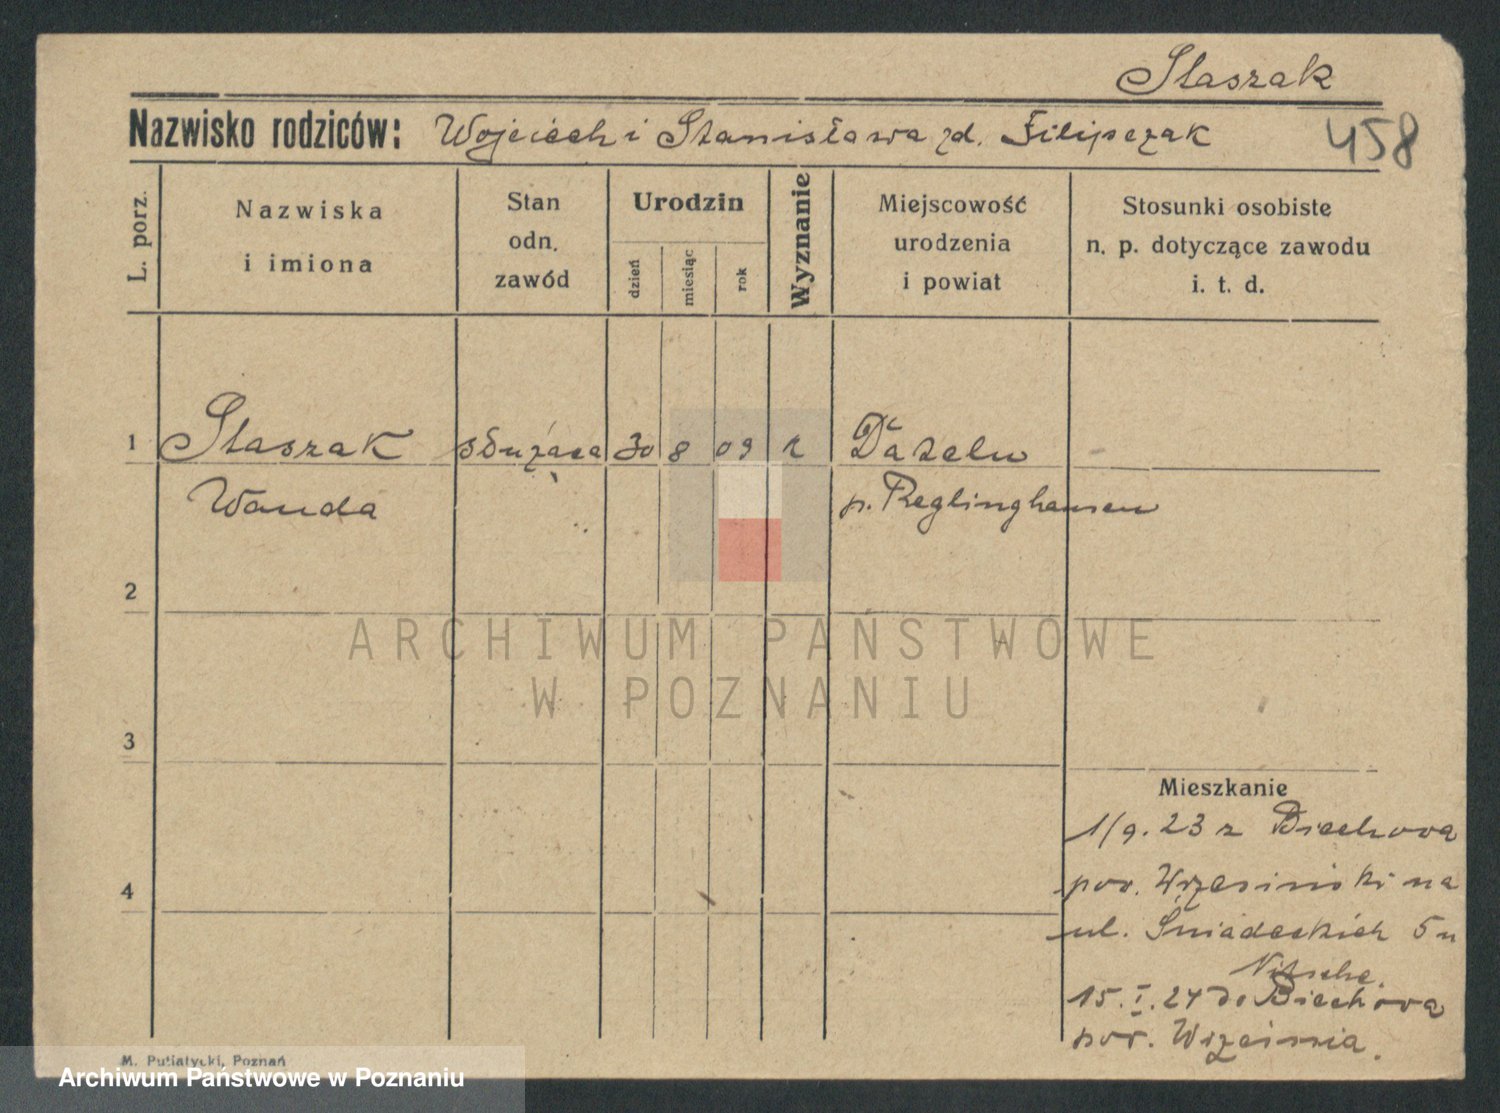 Staszak
Nazwisko rodziców: Wojciech i Stanisława zd. Filipczak
458
L. porz.
Nazwiska
i imiona
Stan
odn.
zawód
Urodzin
dzień
miesiąc
rok
Wyznanie
Miejscowość
urodzenia
i powiat
Stosunki osobiste
n. p. dotyczące zawodu
i. t. d.
1 Staszak służąca 30 8 09 r Dateln
Wanda p. Reglinghausen
2
3
4
ARCHIWUM PAŃSTWOWE
W POZNANIU
Mieszkanie
1/9. 23 z Biechowa
pow. Wrzesiński na
ul. Śniadeckich 5 u
Nitsche.
15. I. 24 do Biechowa
pow. Września.
M. Putiatycki, Poznań
Archiwum Państwowe w Poznaniu